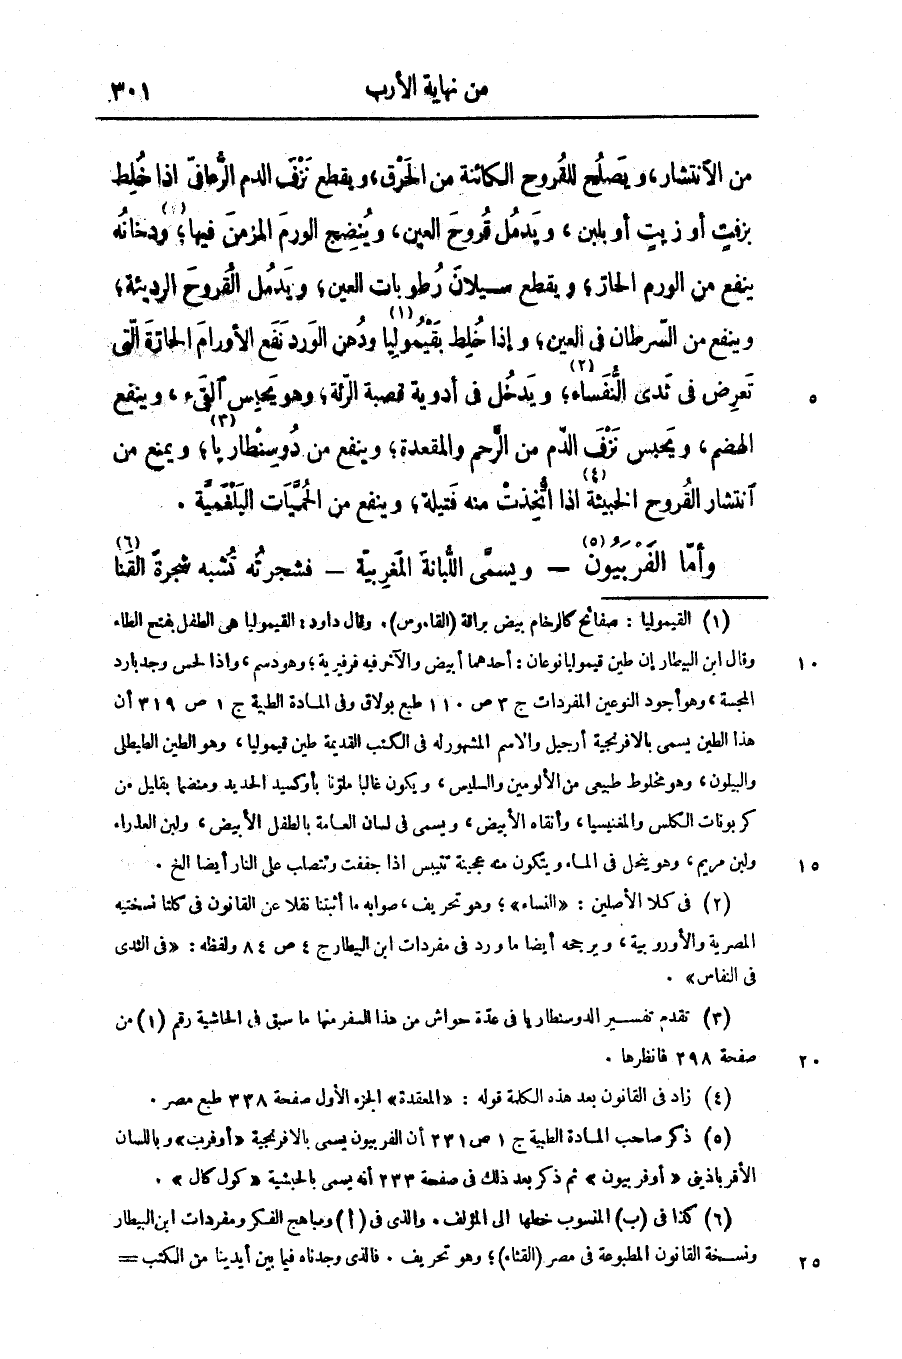 من نهاية الأرب ٣٠١
من الآنتشار، ويَصلُح للقُروح الكائنة من الحَرْق، ويقطع نَزْفَ الدم الرُّعافىّ اذا خُلِط
بزفتٍ أو زيتٍ أو بلبن، ويَدمُل قُروحَ العين، ويُنضِج الورمَ المزمنَ فيها؛ ودخانُه
ينفع من الورم الحارّ؛ ويقطع سيلانَ رُطوبات العين؛ ويَدمُل القُروحَ الرديئة؛
وينفع من السَّرطان فى العين؛ وإذا خُلِط بقَيْمُوليا (١) ودُهن الورد نَفَع الأورامَ الحارّةَ الّتى
تَعرِض فى ثدى النُّفَساء (٢)؛ ويَدخُل فى أدوية قصبة الرّئة؛ وهو يَحبِس القىء، وينفع ٥
الهضم، ويَحبس نَزْفَ الدّم من الرَّحِم والمقعدة؛ وينفع من دُوسِنْطاريا (٣)؛ ويمنع من
آنتشار القُروح الخبيثة (٤) اذا اتُّخِذتْ منه فَتيلة؛ وينفع من الحُمَّيَات البَلْغَميّة .
وأمّا الفَرْبَيُون (٥) — ويسمَّى اللُّبانةَ المَغرِبيّة — فشجرتُه تُشبه شجرةَ القنا (٦)
(١) القيموليا : صفائح كالرخام بيض براقة (القاموس). وقال داود : القيموليا هى الطفل بفتح الطاء
وقال ابن البيطار إن طين قيموليا نوعان : أحدهما أبيض والآخر فيه فرفيرية ؛ وهو دسم، واذا لمس وجد بارد ١٠
المجسة، وهو أجود النوعين المفردات ج ٣ ص ١١٠ طبع بولاق وفى المادة الطبية ج ١ ص ٣١٩ أن
هذا الطين يسمى بالافرنجية أرجيل والاسم المشهور له فى الكتب القديمة طين قيموليا، وهو الطين الطيطلى
والبيلون، وهو مخلوط طبيعى من الألومين والسليس، ويكون غالبا ملوّنا بأوكسيد الحديد ومنضما بقليل من
كربونات الكلس والمغنيسيا، وأنقاه الأبيض، ويسمى فى لسان العامة بالطفل الأبيض، ولبن العذراء
ولبن مريم، وهو ينحل فى الماء ويتكون منه عجينة تتيبس اذا جففت وتتصلب على النار أيضا الخ . ١٥
(٢) فى كلا الأصلين : «النساء»؛ وهو تحريف، صوابه ما أثبتنا نقلا عن القانون فى كلتا نسختيه
المصرية والأوروبية، ويرجحه أيضا ما ورد فى مفردات ابن البيطار ج ٤ ص ٨٤ ولفظه : «فى الثدى
فى النفاس» .
(٣) تقدم تفسير الدوسنطاريا فى عدّة حواش من هذا السفر منها ما سبق فى الحاشية رقم (١) من
صفحة ٢٩٨ فانظرها . ٢٠
(٤) زاد فى القانون بعد هذه الكلمة قوله : «المعقدة» الجزء الأول صفحة ٣٣٨ طبع مصر .
(٥) ذكر صاحب المادة الطبية ج ١ ص ٢٣١ أن الفربيون يسمى بالافرنجية «أوفرب» وباللسان
الأقرباذينى «أوفربيون» ثم ذكر بعد ذلك فى صفحة ٢٣٣ أنه يسمى بالحبشية «كول كال» .
(٦) كذا فى (ب) المنسوب خطها الى المؤلف . والذى فى (أ) ومباهج الفكر ومفردات ابن البيطار
ونسخة القانون المطبوعة فى مصر (القثاء)؛ وهو تحريف . فالذى وجدناه فيما بين أيدينا من الكتب = ٢٥